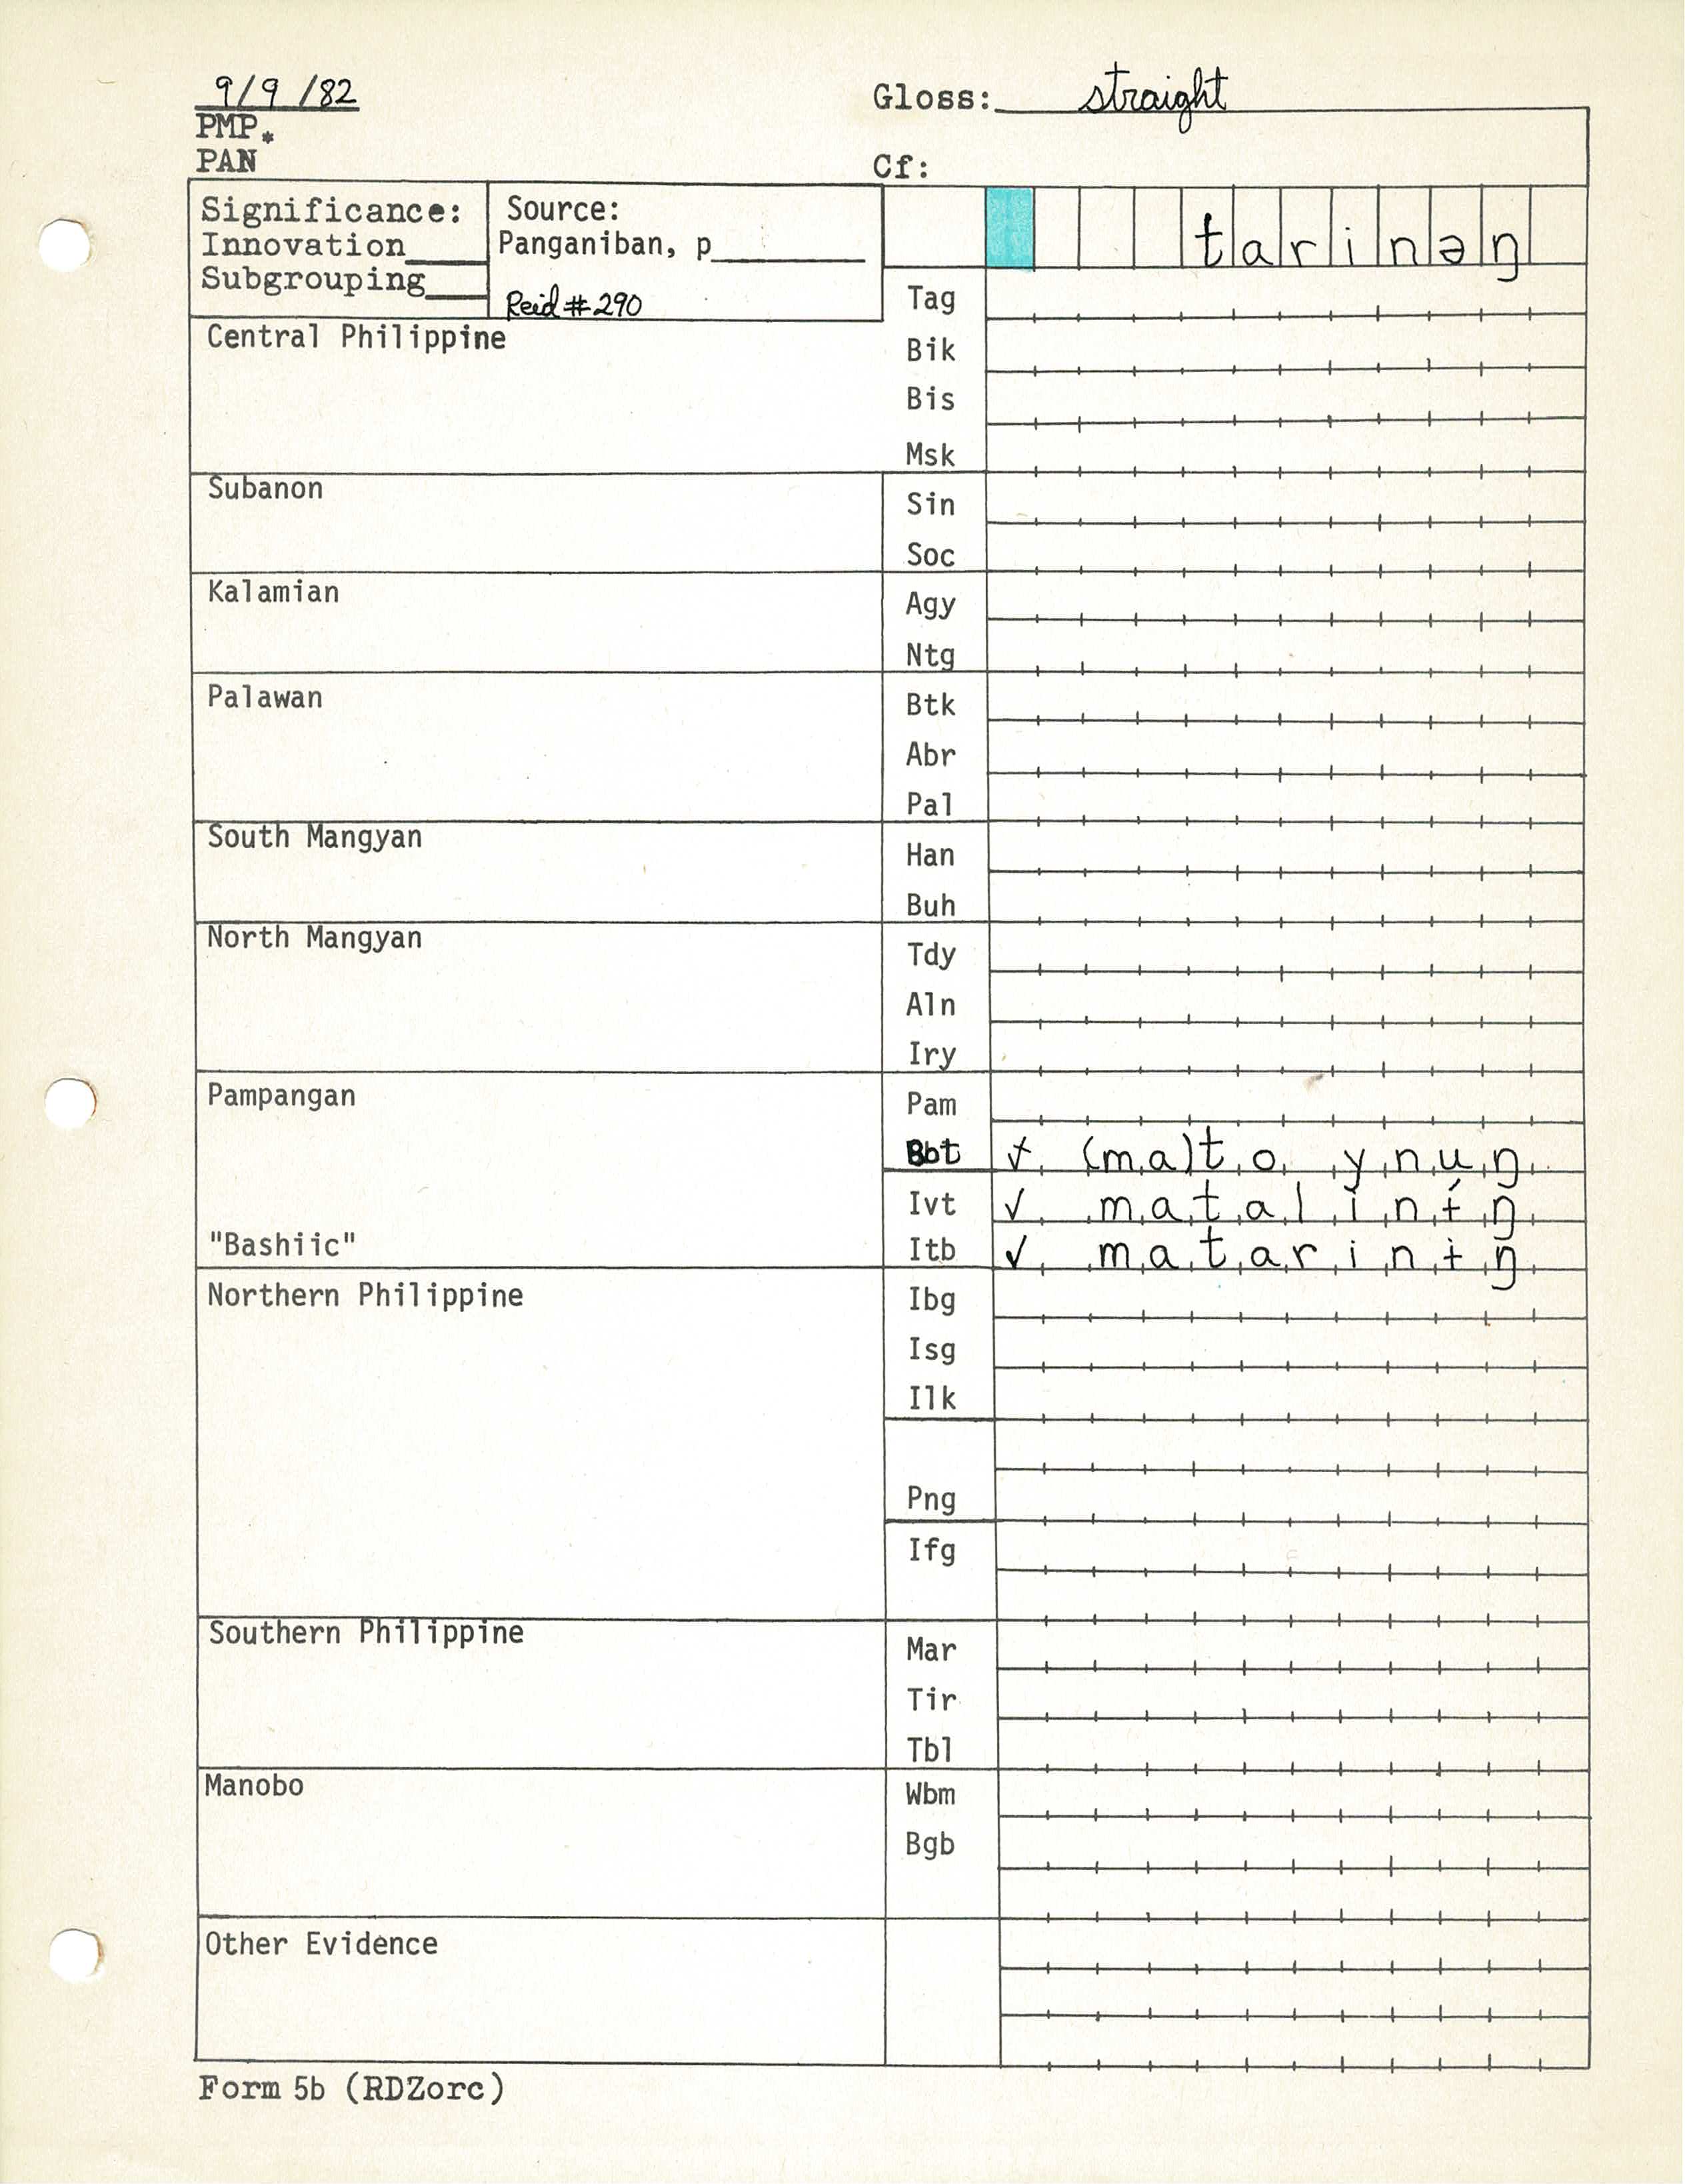 9/9/82
Gloss: straight
PMP*
PAN
Cf:
Significance:
Innovation____
Subgrouping____
Source:
Panganiban, p________
Reid #290
tarinəŋ
Tag
Central Philippine
Bik
Bis
Msk
Subanon
Sin
Soc
Kalamian
Agy
Ntg
Palawan
Btk
Abr
Pal
South Mangyan
Han
Buh
North Mangyan
Tdy
Aln
Iry
Pampangan
Pam
Bbt (ma)to ynuŋ
Ivt ✓ matalinɨ́ŋ
"Bashiic"
Itb ✓ matarinɨŋ
Northern Philippine
Ibg
Isg
Ilk
Png
Ifg
Southern Philippine
Mar
Tir
Tbl
Manobo
Wbm
Bgb
Other Evidence
Form 5b (RDZorc)